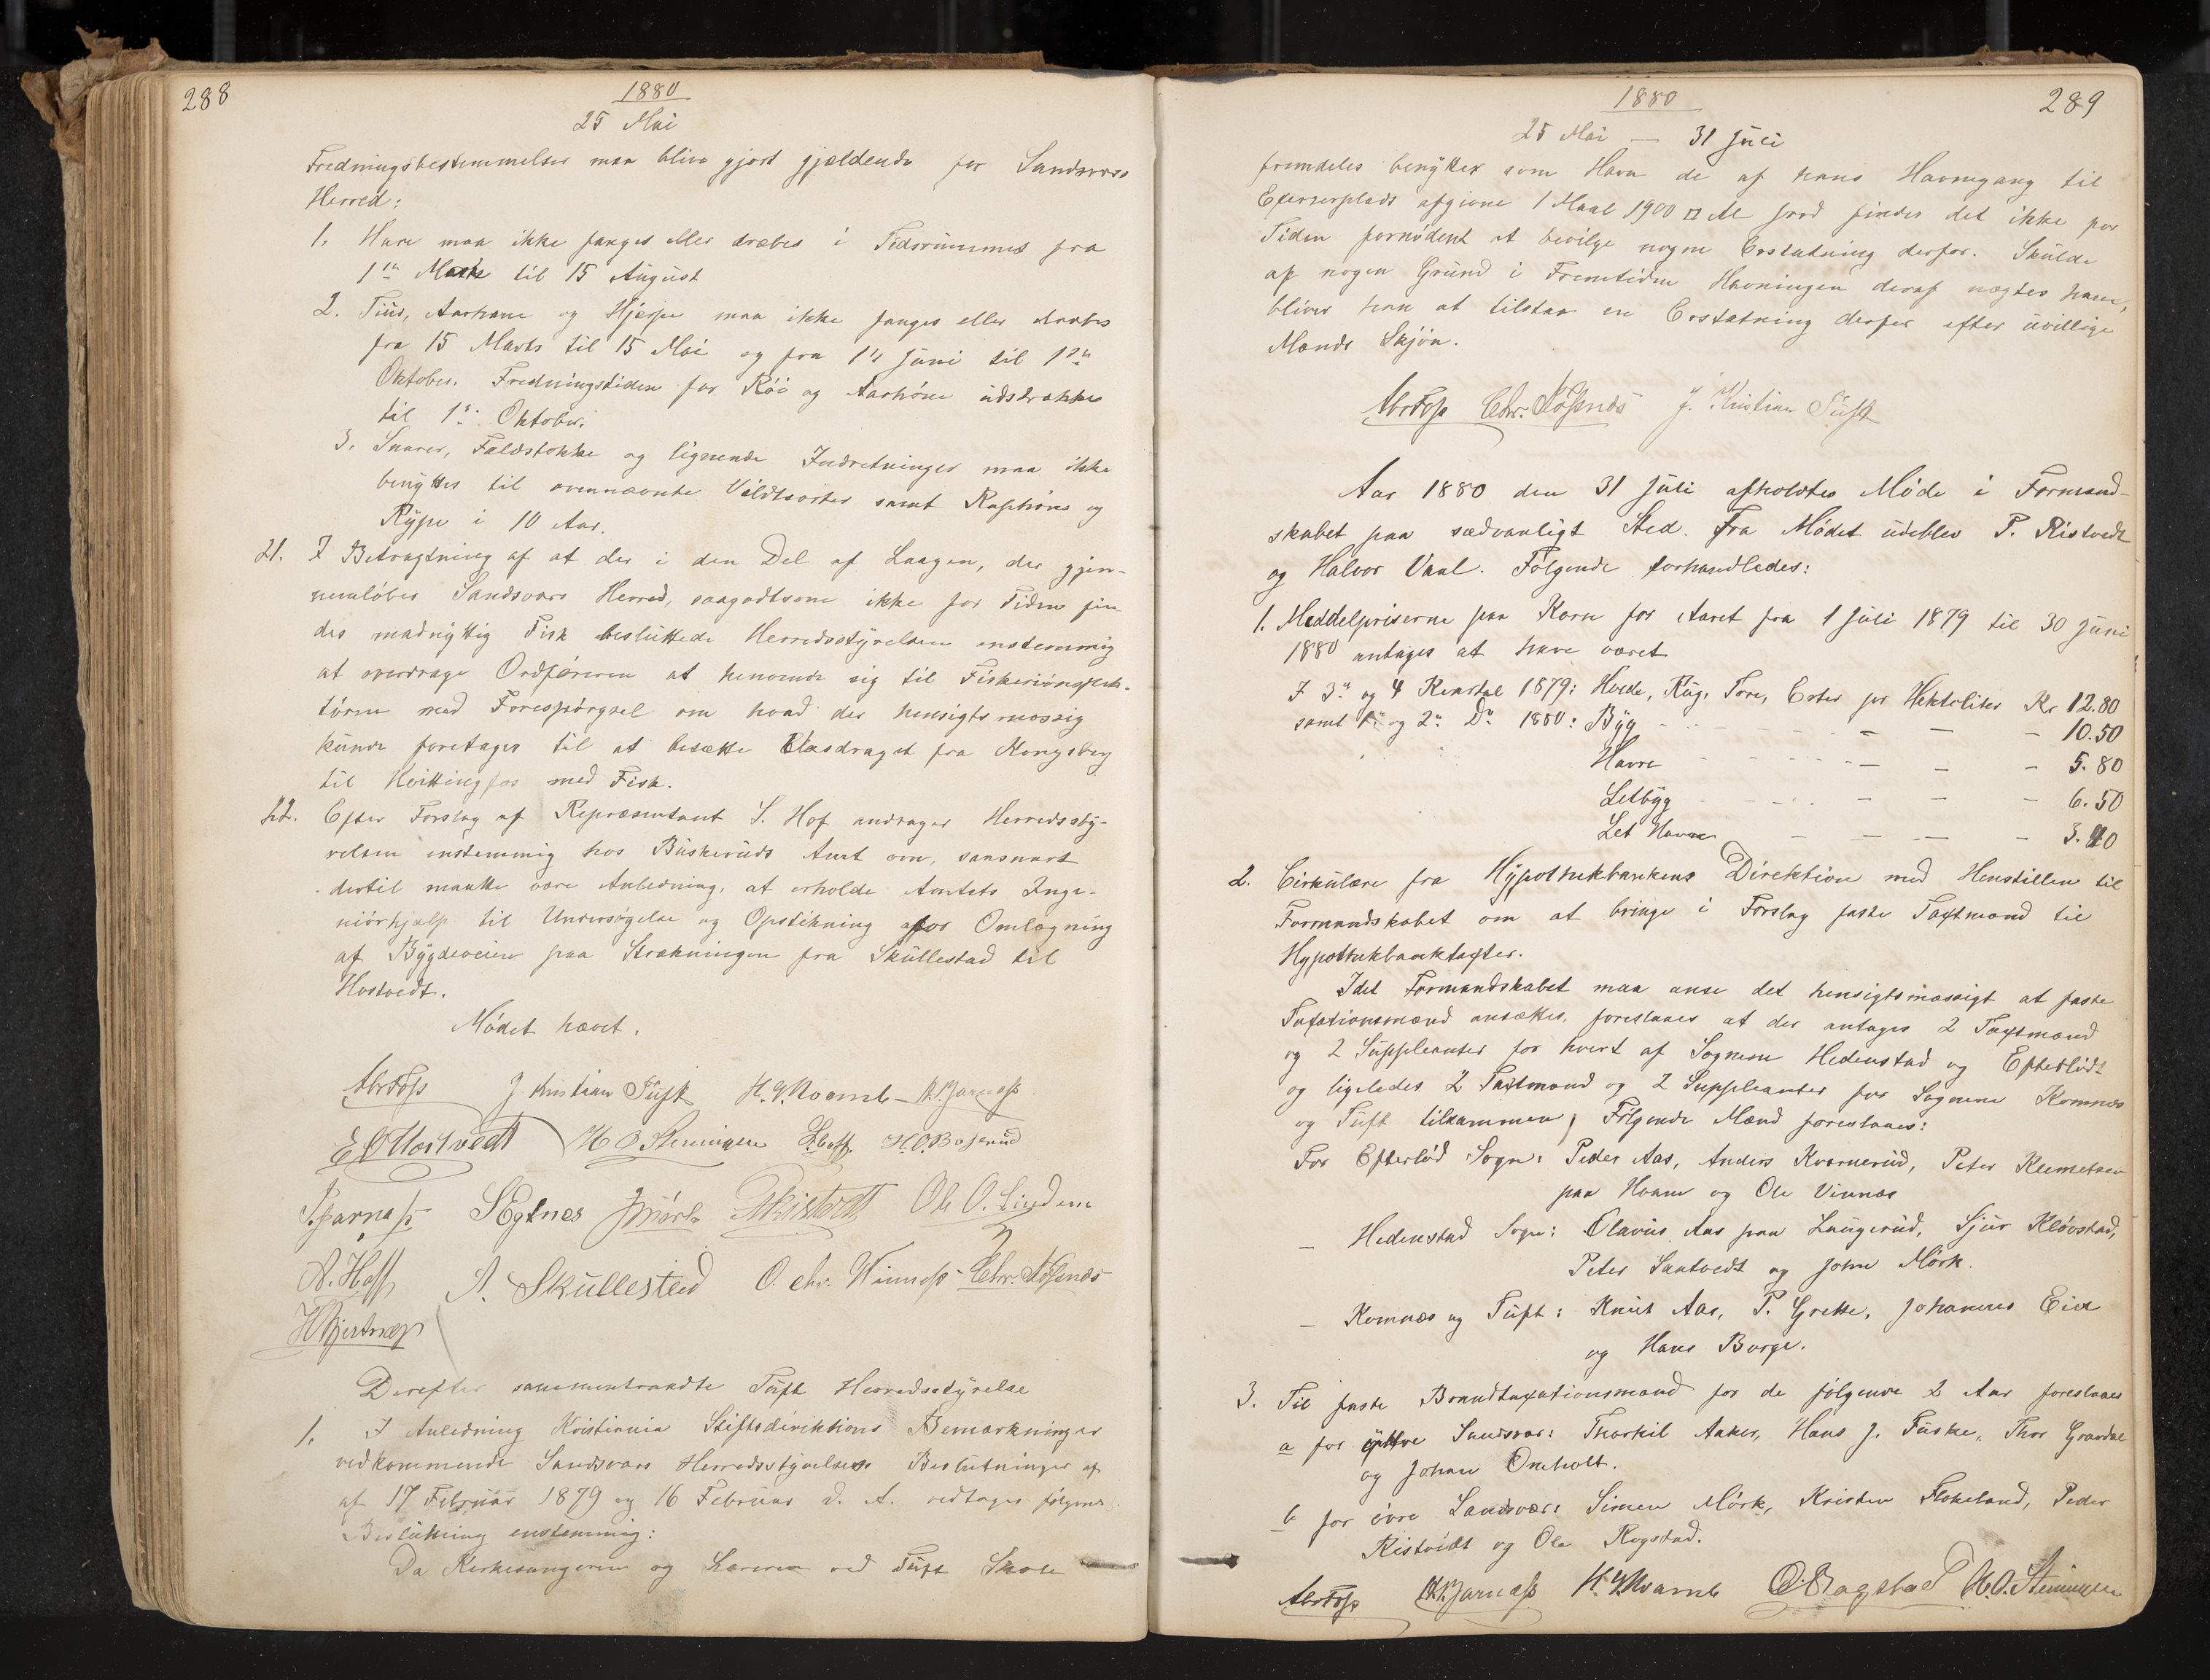 288
1880
25 Mai
Fredningsbestemmelser maa blive gjort gjældende for Sandsværs
Herred:
1. Hare maa ikke fanges eller dræbes i Tidsrummet fra
1ste Marts til 15 August
2. Tiur, Aarhane og Hjerpe maa ikke fanges eller dræbes
fra 15 Marts til 15 Mai og fra 1ste Juni til 1ste
Oktober. Fredningstiden for Röi og Aarhöne udstrækkes
til 1ste Oktober.
3. Snarer, Faldstokke og lignende Indretninger maa ikke
benyttes til ovennævnte Vildtsorter samt Raphöns og
Rype i 10 Aar.
21. I Betragtning af at der i den Del af Laagen, der gjen-
nemlöber Sandsværs Herred, saagodtsom ikke for Tiden fin-
des madnyttig Fisk besluttede Herredsstyrelsen enstemmig
at overdrage Ordföreren at henvende sig til Fiskeriinspek-
tören med Forespörgsel om hvad der hensigtsmæssig
kunde foretages til at besætte Elvedraget fra Kongsberg
til Hvittingfos med Fisk.
22. Efter Forslag af Repræsentant S. Hof andrager Herredssty-
relsen enstemmig hos Buskeruds Amt om, saasnart
dertil maatte være Anledning, at erholde Amtets Inge-
niörhjælp til Undersögelse og Opstikning for Omlægning
af Bygdeveien paa Strækningen fra Skullestad til
Hostvedt.
Mödet hævet.
Abr Foss J Kristian Tuft H. G. Kvamb
E O Hostvedt H O Steningen S. Hoff.
SEgtnes JMörk PRistvedt Ole O. Linden
A. Hoff A. Skullestad O. Chr. Winness
Derefter sammentraadte Tuft Herredsstyrelse
1. I Anledning Kristiania Stiftsdirektions Bemærkninger
vedkommende Sandsværs Herredsstyrelses Beslutninger af
af 17 Februar 1879 og 16 Februar d. A. vedtages fölgende
Beslutning enstemmig:
Da Kirkesangeren og Læreren ved Tuft Skole
289
1880
25 Mai — 31 Juli
fremdeles benytter som Havn de af hans Havnegang til
Exerserplads afgivne 1 Maal 1900 □ Al Jord findes det ikke for
Tiden fornödent at bevilge nogen Erstatning derfor. Skulde
af nogen Grund i Fremtiden Havningen deraf nægtes ham,
bliver ham at tilstaa en Erstatning derfor efter uvillige
Mænds Skjön.
Abr Foss J. Kristian Tuft
Aar 1880 den 31 Juli afholdtes Möde i Formand-
skabet paa sædvanligt Sted. Fra Mödet udeblev P. Ristvedt
og Halvor Vaal. Fölgende forhandledes:
1. Middelpriserne paa Korn for Aaret fra 1 Juli 1879 til 30 Juni
1880 antages at have været
I 3die og 4 Kvartal 1879: Hvede, Rug, Tore, Erter pr Hektoliter Kr 12.80
samt 1ste og 2det Do 1880: Byg - - - - — — — 10.50
Havre - - - - — — — 5.80
Letbyg - - - — — — 6.50
Let Havre — — — 3.40
2. Cirkulære fra Hypothekbankens Direktion med Henstillen til
Formandskabet om at bringe i Forslag faste Taxtmænd til
Hypothekbanktaxter.
Idet Formandskabet maa anse det hensigtsmæssigt at faste
Taxationsmænd ansættes, foreslaaes at der antages 2 Taxtmænd
og 2 Suppleanter for hvert af Sognene Hedenstad og Efterlöd
og ligeledes 2 Taxtmænd og 2 Suppleanter for Sognene Komnæs
og Tuft tilsammen; Fölgende Mænd foreslaaes:
For Efterlöd Sogn: Peder Aas, Anders Kvarnerud, Peter Klemetsen
paa Hvam og Ole Vinnæs
— Hedenstad Sogn: Olavus Aas paa Laugerud, Sjur Klövstad,
Peter Santvedt og John Mörk.
— Komnæs og Tuft: Knut Aas, P. Grette, Johannes Eid
og Hans Borge.
3. Til faste Brandtaxationsmænd for de fölgende 2 Aar foreslaaes
a for ytre Sandsvær: Thorkil Aaker, Hans J. Fuske, Thor Gravdal
og Johan Omholt.
b for övre Sandsvær: Simen Mörk, Kristen Flokeland, Peder
Ristvedt og Ole Rogstad.
Abr Foss H. G. Kvamb O. Bagstad H. O. Steningen